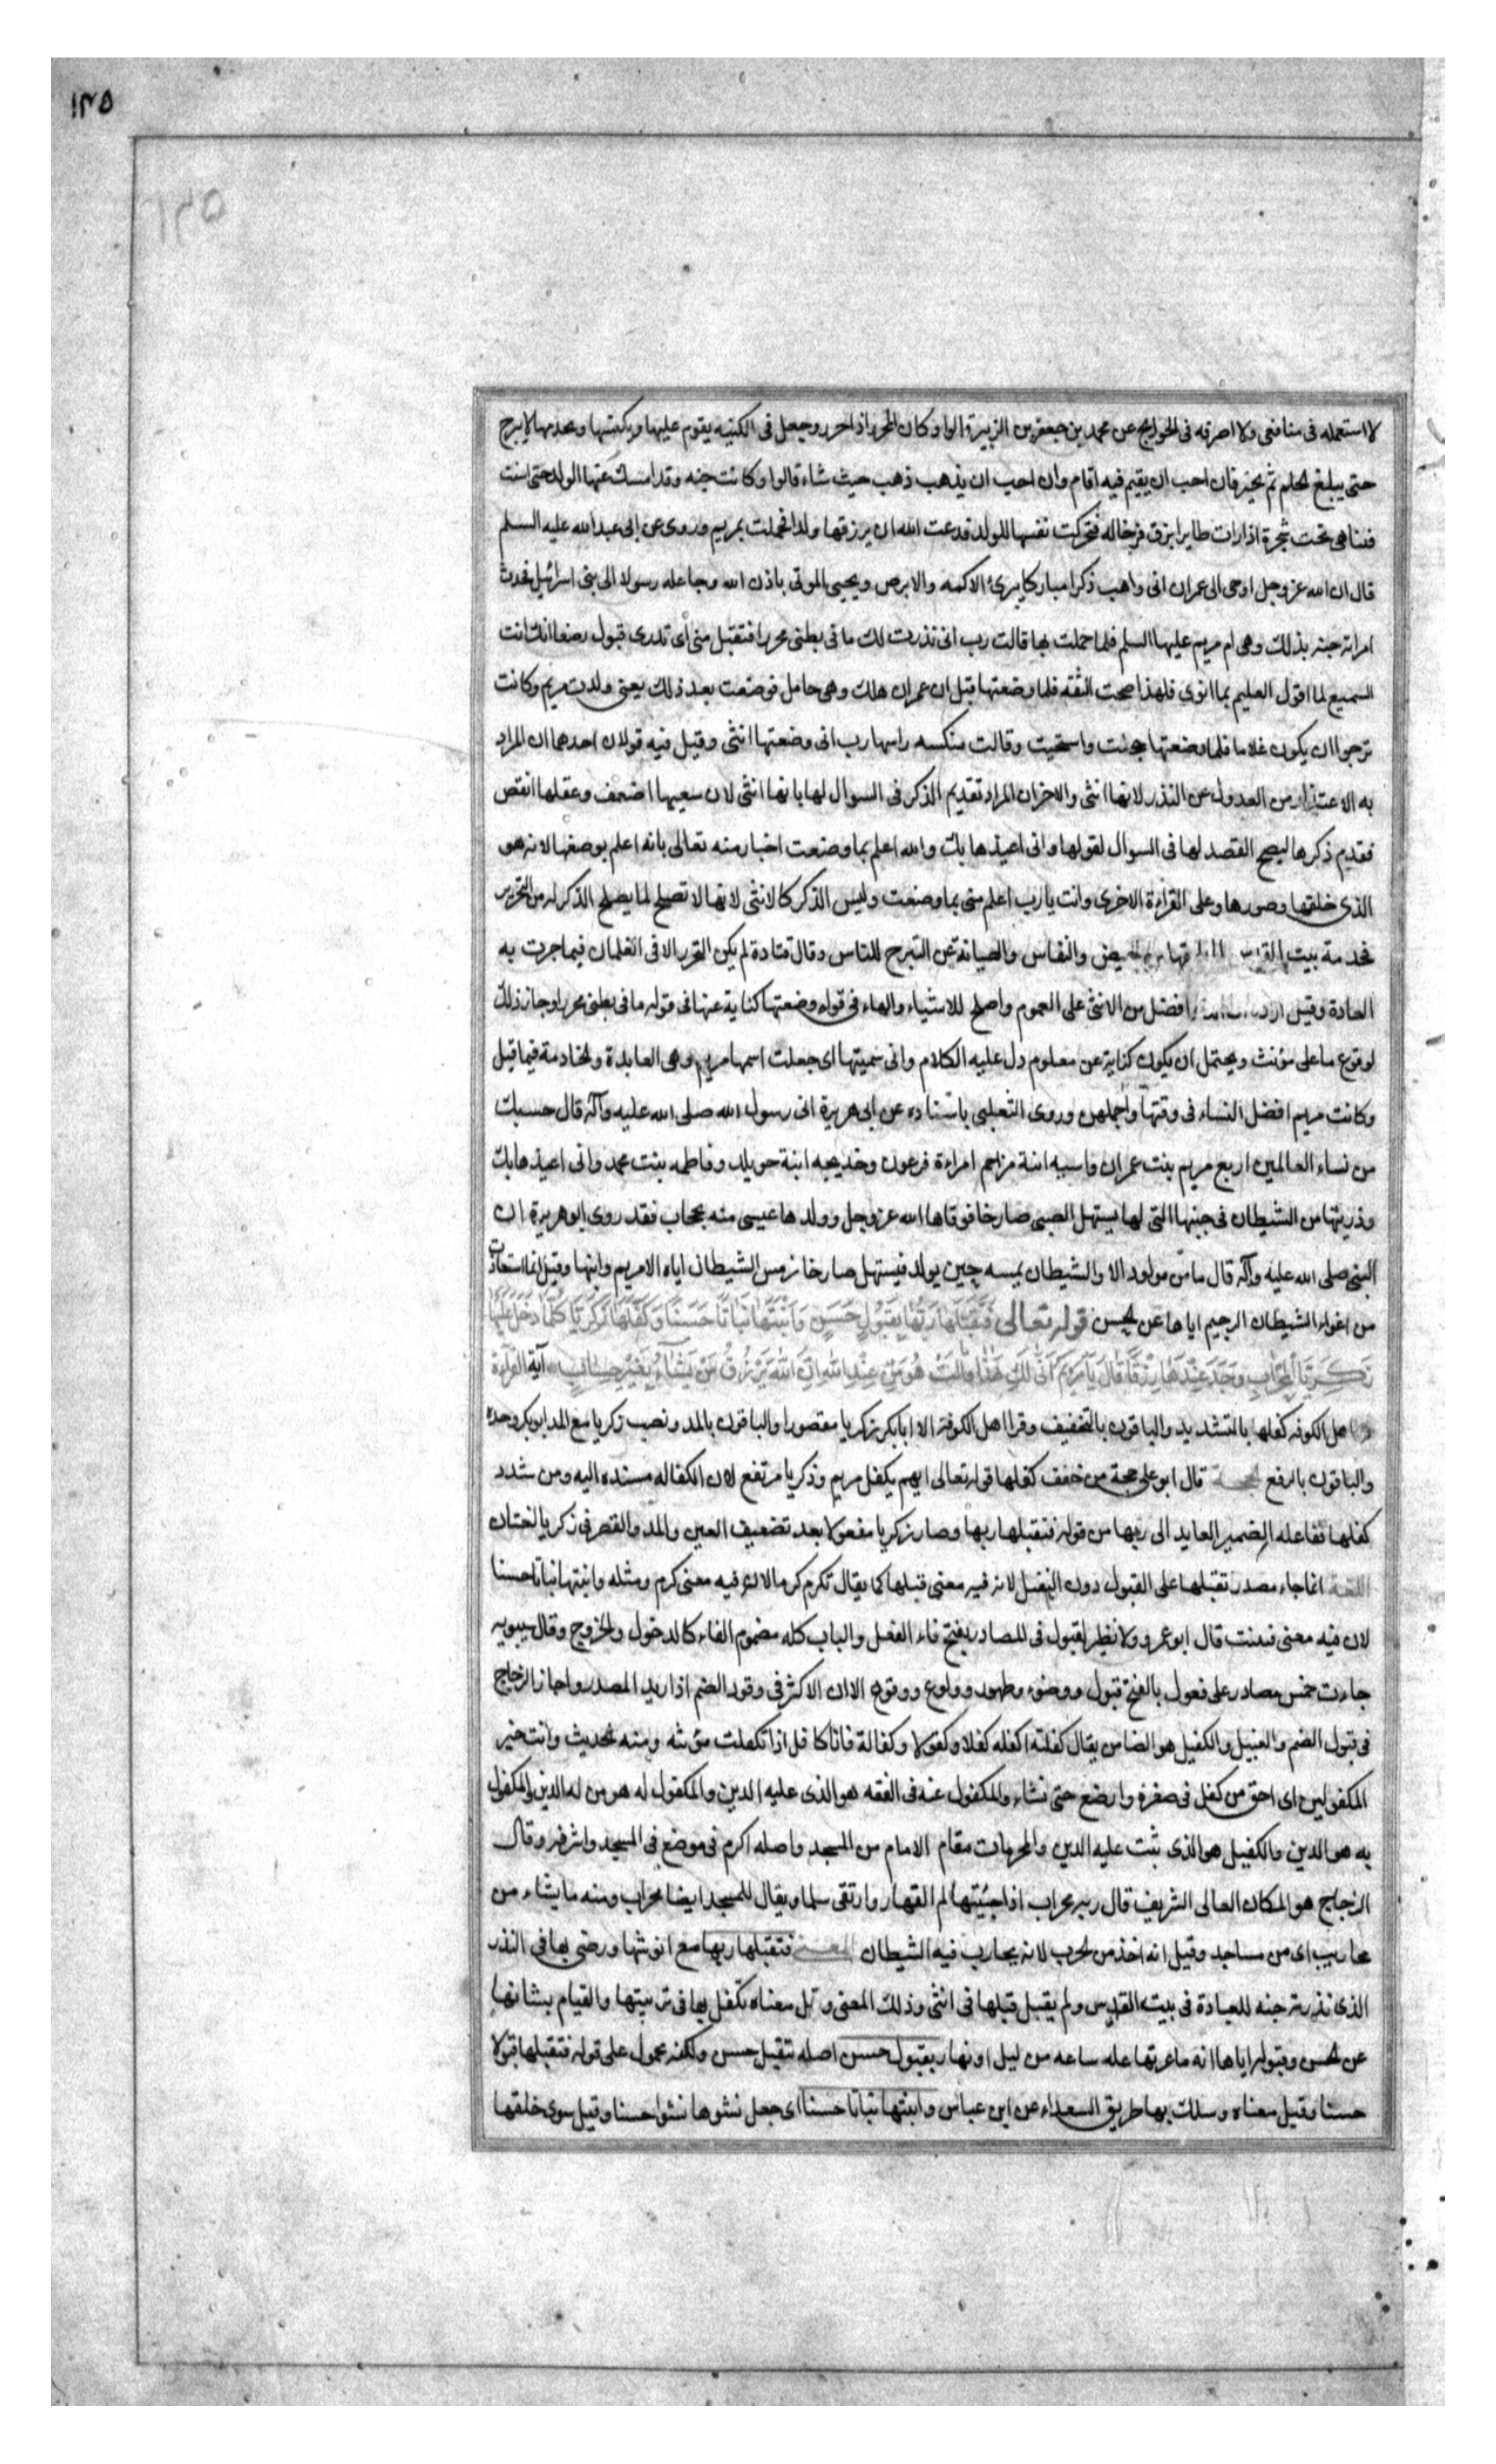 ١٣٥
١٣٥
لا استعمله فى منافعى ولا اصرفه فى الحوايج عن محمد بن جعفر بن الزبير قالوا وكان المحرر اذا حرر وجعل فى الكنيسه يقوم عليها ويكنسها ويخدمها لا يبرح
حتى يبلغ الحلم ثم يخير فان احب ان يقيم فيه اقام وان احب ان يذهب ذهب حيث شاء قالوا وكانت حنه وقد امسك عنها الولد حتى اسنت
فبينا هى تحت شجرة اذا رات طايرا يزق فرخا له فتحركت نفسها للولد فدعت الله ان يرزقها ولدا فحملت بمريم وروى عن ابى عبد الله عليه السلم
قال ان الله عز وجل اوحى الى عمران انى واهب ذكرا مباركا يبرئ الاكمه والابرص ويحيى الموتى باذن الله وجاعله رسولا الى بنى اسرائيل فحدث
امراته حنه بذلك وهى ام مريم عليها السلم فلما حملت بها قالت رب انى نذرت لك ما فى بطنى محررا فتقبل منى اى نذرى قبول رضا انك انت
السميع لما اقول العليم بما انوى فلهذا صحت الثقه فلما وضعتها قيل ان عمران هلك وهى حامل فوضعت بعد ذلك يعنى ولدت مريم وكانت
ترجوا ان يكون غلاما فلما وضعتها خجلت واستحيت وقالت منكسه راسها رب انى وضعتها انثى وقيل فيه قولان احدهما ان المراد
به الاعتذار من العدول عن النذر لانها انثى والاخر ان المراد تقديم الذكر فى السوال لها بانها انثى لان سعيها اضعف وعقلها انقص
فقديم ذكرها ليصح القصد لها فى السوال لقولها وانى اعيذها بك والله اعلم بما وضعت اخبار منه تعالى بانه اعلم بوضعها لانه هو
الذى خلقها وصورها وعلى القراءة الاخرى وانت يا رب اعلم منى بما وضعت وليس الذكر كالانثى لانها لا تصلح لما يصلح الذكر له من التحرير
لخدمة بيت المقدس والنفاس والصيانة عن التبرج للناس وقال قتادة لم يكن التحرير الا فى الغلمان فيما جرت به
العادة وقيل افضل من الانثى على العموم واصلح للاشياء والهاء فى قوله وضعتها كناية عنها فى قوله ما فى بطنى محررا وجاز ذلك
لوقوع ما على مؤنث ويحتمل ان يكون كناية عن معلوم دل عليه الكلام وانى سميتها اى جعلت اسمها مريم وهى العابدة والخادمة فيما قيل
وكانت مريم افضل النساء فى وقتها واجملهن وروى الثعلبى باسناده عن ابى هريرة ان رسول الله صلى الله عليه وآله قال حسبك
من نساء العالمين اربع مريم بنت عمران واسيه ابنة مزاحم امراءة فرعون وخديجه ابنة خويلد وفاطمه بنت محمد وانى اعيذها بك
وذريتها من الشيطان فى جنبها التى لها يستهل الصبى صارخا فوقاها الله عز وجل وولدها عيسى منه بحجاب فقد روى ابو هريرة ان
النبى صلى الله عليه وآله قال ما من مولود الا والشيطان يمسه حين يولد فيستهل صارخا من مس الشيطان اياه الا مريم وابنها وقيل انما استعاذت
من اغواء الشيطان الرجيم اياها عن الحسن قوله تعالى فَتَقَبَّلَهَا رَبُّهَا بِقَبُولٍ حَسَنٍ وَاَنْبَتَهَا نَبَاتًا حَسَنًا وَكَفَّلَهَا زَكَرِيَّا كُلَّمَا دَخَلَ عَلَيْهَا
زَكَرِيَّا الْمِحْرَابَ وَجَدَ عِنْدَهَا رِزْقًا قَالَ يَا مَرْيَمُ اَنّٰى لَكِ هٰذَا قَالَتْ هُوَ مِنْ عِنْدِ اللهِ اِنَّ اللهَ يَرْزُقُ مَنْ يَشَآءُ بِغَيْرِ حِسَابٍ آية القراءة
اهل الكوفه كفلها بالتشديد والباقون بالتخفيف وقرا اهل الكوفة الا ابا بكر زكريا مقصورا والباقون بالمد ونصب زكريا مع المد ابو بكر وحده
والباقون بالرفع الحجة قال ابو على حجة من خفف كفلها قوله تعالى ايهم يكفل مريم وزكريا مرتفع لان الكفاله مسنده اليه ومن شدد
كفلها ففاعله الضمير العايد الى ربها من قوله فتقبلها ربها وصار زكريا مفعولا بعد تضعيف العين والمد والقصر فى زكريا لغتان
اللغة انما جاء مصدر تقبلها على القبول دون التقبل لان فيه معنى قبلها كما يقال تكرم كرما لان فيه معنى كرم ومثله وانبتها نباتا حسنا
لان فيه معنى فنبتت قال ابو عمرو ولا نظير لقبول فى المصادر بفتح فاء الفعل والباب كله مضموم الفاء كالدخول والخروج وقال سيبويه
جاءت خمس مصادر على فعول بالفتح قبول ووضوء وطهور وولوع ووقود الا ان الاكثر فى وقود الضم اذا اريد المصدر واجاز الزجاج
فى قبول الضم والكفيل هو الضامن يقال كفلته اكفله كفلا وكفولا وكفالة فانا كافل اذا تكفلت مؤنته ومنه الحديث وانت خير
المكفولين اى احق من كفل فى صغره وارضع حتى نشاء والمكفول عنه فى الفقه هو الذى عليه الدين والمكفول له هو من له الدين والمكفول
به هو الدين والكفيل هو الذى ثبت عليه الدين والمحراب مقام الامام من المسجد واصله اكرم فى موضع فى المسجد واشرفه وقال
الزجاج هو المكان العالى الشريف قال ربه محراب اذا جئتها لم القها او ارتقى سلما ويقال للمسجد ايضا محراب ومنه ما يشاء من
محاريب اى من مساجد وقيل انه اخذ من الحرب لانه يحارب فيه الشيطان المعنى فتقبلها ربها مع انوثتها ورضى بها فى النذر
الذى نذرته حنه للعبادة فى بيت المقدس ولم يقبل قبلها فى انثى وذلك المعنى وقيل معناه تكفل بها فى تربيتها والقيام بشانها
عن الحسن وقبوله اياها انه ما عرتها عله ساعه من ليل او نهار بقبول حسن اصله بتقبل حسن ولكنه محمول على قوله فتقبلها قبولا
حسنا وقيل معناه وسلك بها طريق السعداء عن ابن عباس وانبتها نباتا حسنا اى جعل نشوها نشوا حسنا وقيل سوى خلقها